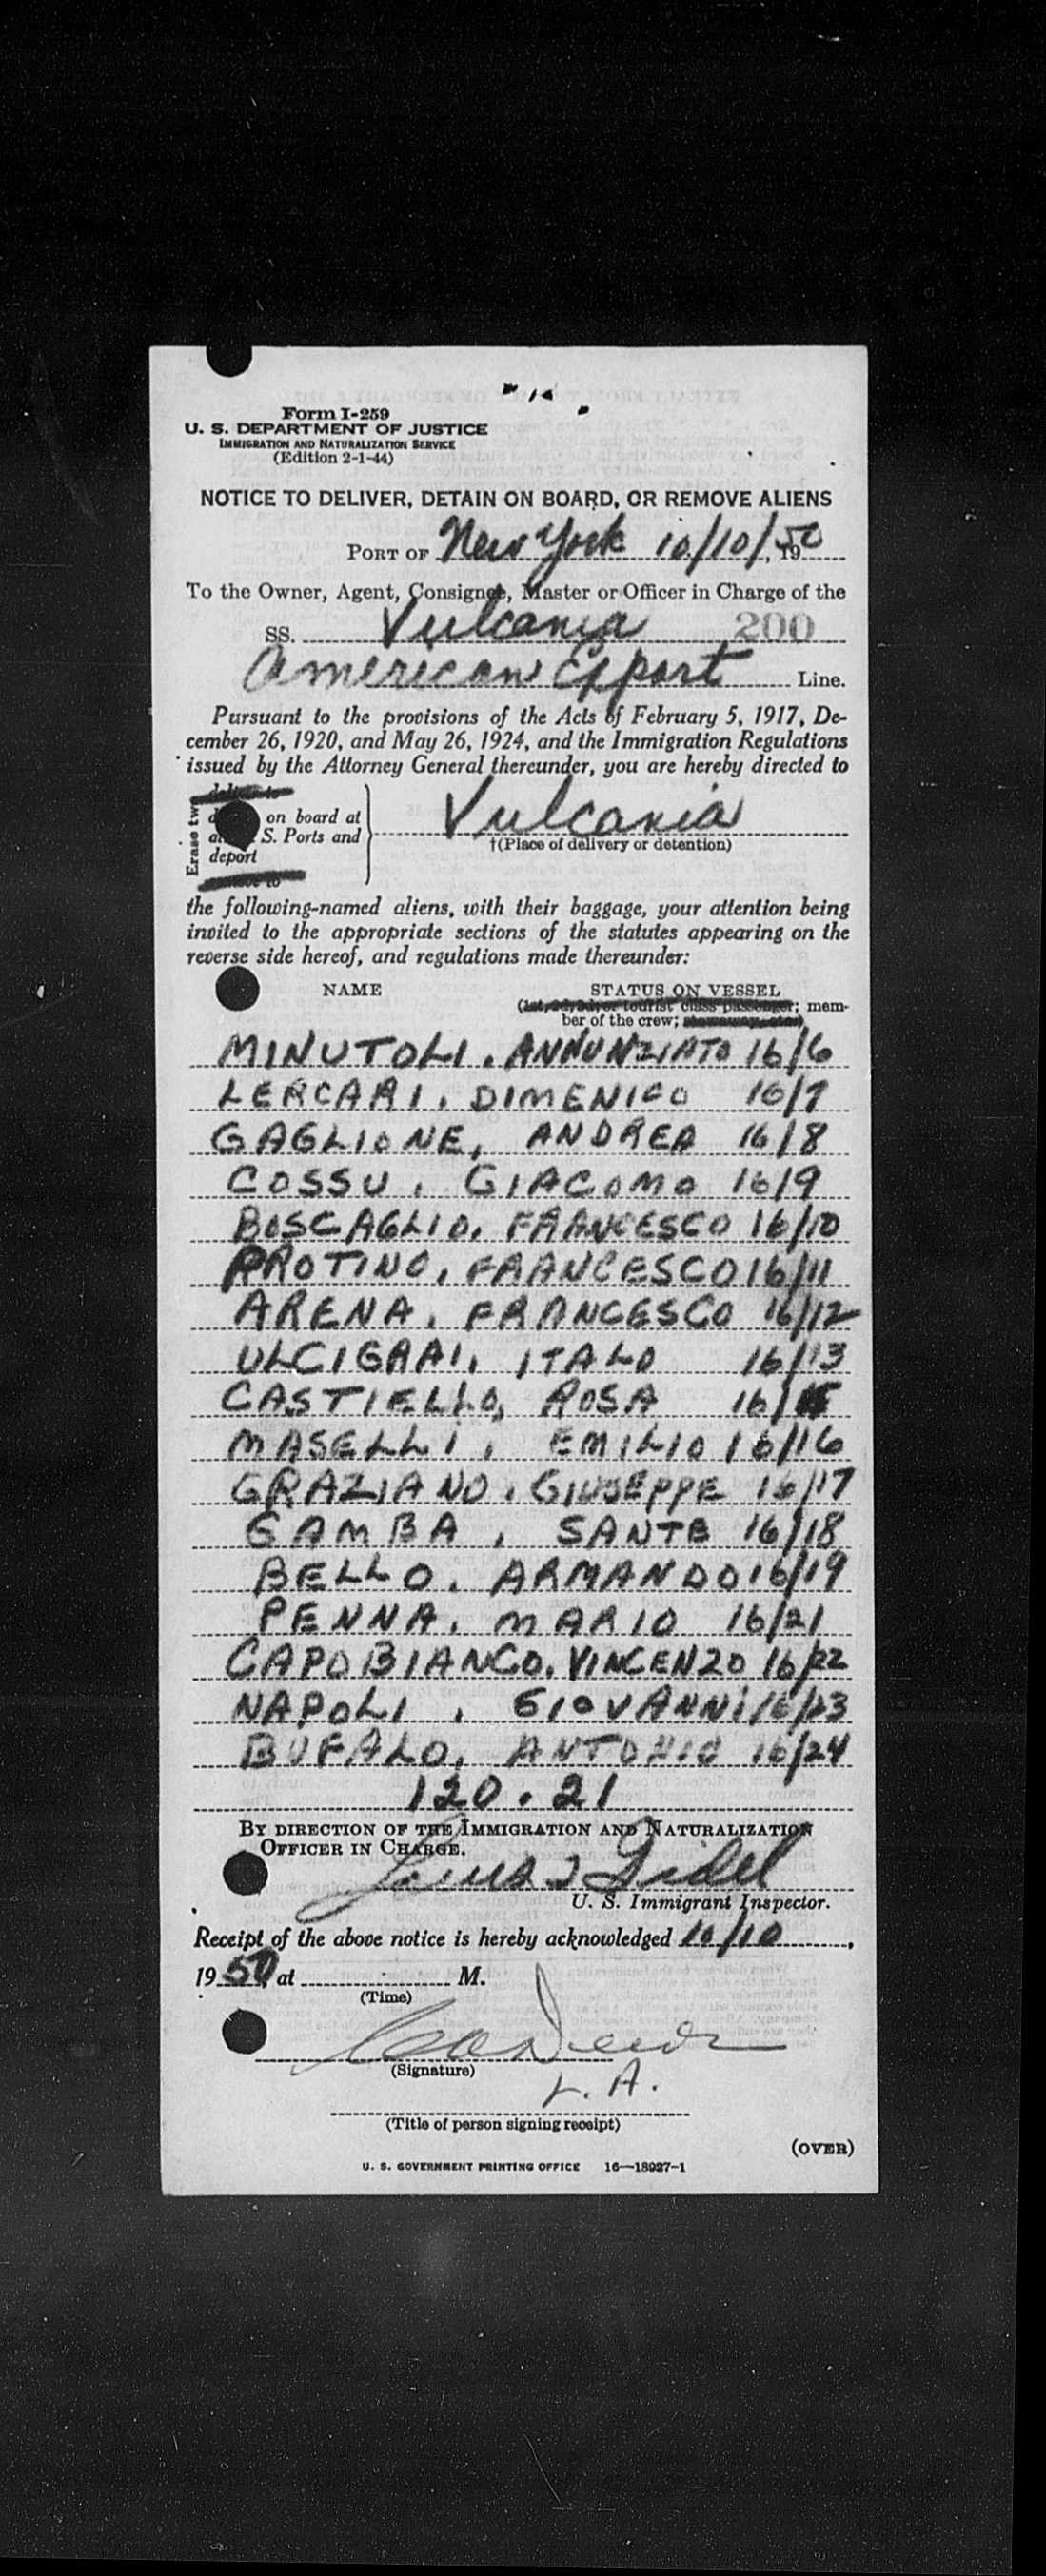 Form I-259
U. S. DEPARTMENT OF JUSTICE
IMMIGRATION AND NATURALIZATION SERVICE
(Edition 2-1-44)
NOTICE TO DELIVER, DETAIN ON BOARD, OR REMOVE ALIENS
PORT OF New York 10/10/, 1950
To the Owner, Agent, Consignee, Master or Officer in Charge of the
SS. Vulcania 200
American Export Line.
Pursuant to the provisions of the Acts of February 5, 1917, De-
cember 26, 1920, and May 26, 1924, and the Immigration Regulations
issued by the Attorney General thereunder, you are hereby directed to
Erase two
on board at
S. Ports and
deport
Vulcania
†(Place of delivery or detention)
the following-named aliens, with their baggage, your attention being
invited to the appropriate sections of the statutes appearing on the
reverse side hereof, and regulations made thereunder:
NAME STATUS ON VESSEL
(1st, 2d, 3d, or tourist class passenger; mem-
ber of the crew;
MINUTOLI. ANNUNZIATO 16/6
LERCARI. DIMENICO 16/7
GAGLIONE, ANDREA 16/8
COSSU. GIACOMO 16/9
BOSCAGLIO. FRANCESCO 16/10
PROTINO, FRANCESCO 16/11
ARENA. FRANCESCO 16/12
ULCIGRAI, ITALO 16/13
CASTIELLO, ROSA 16/
MASELLI, EMILIO 16/16
GRAZIANO. GIUSEPPE 16/17
GAMBA, SANTE 16/18
BELLO. ARMANDO 16/19
PENNA. MARIO 16/21
CAPOBIANCO. VINCENZO 16/22
NAPOLI. GIOVANNI 16/23
BUFALO, ANTONIO 16/24
120.21
BY DIRECTION OF THE IMMIGRATION AND NATURALIZATION
OFFICER IN CHARGE.
U. S. Immigrant Inspector.
Receipt of the above notice is hereby acknowledged 10/10,
1950 at M.
(Time)
(Signature)
(Title of person signing receipt)
(OVER)
U. S. GOVERNMENT PRINTING OFFICE 16—18927-1